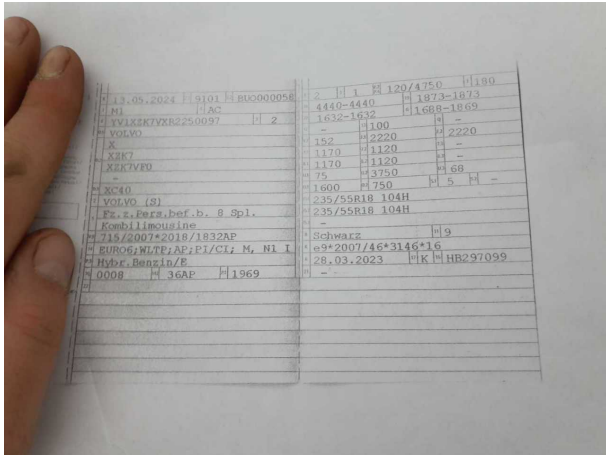 13.05.2024 9101 BUO000058
M1 AC
YV1XZK7VXR2250097 2
VOLVO
X
XZK7
XZK7VF0
-
XC40
VOLVO (S)
Fz.z.Pers.bef.b. 8 Spl.
Kombilimousine
715/2007*2018/1832AP
EURO6;WLTP;AP;PI/CI; M, N1 I
Hybr.Benzin/E
0008 36AP 1969
2 1 120/4750 180
4440-4440 1873-1873
1632-1632 1688-1869
- 100 -
152 2220 2220
1170 1120 -
1170 1120 -
75 3750 68
1600 750 5 -
235/55R18 104H
235/55R18 104H
-
-
Schwarz 9
e9*2007/46*3146*16
28.03.2023 K HB297099
-